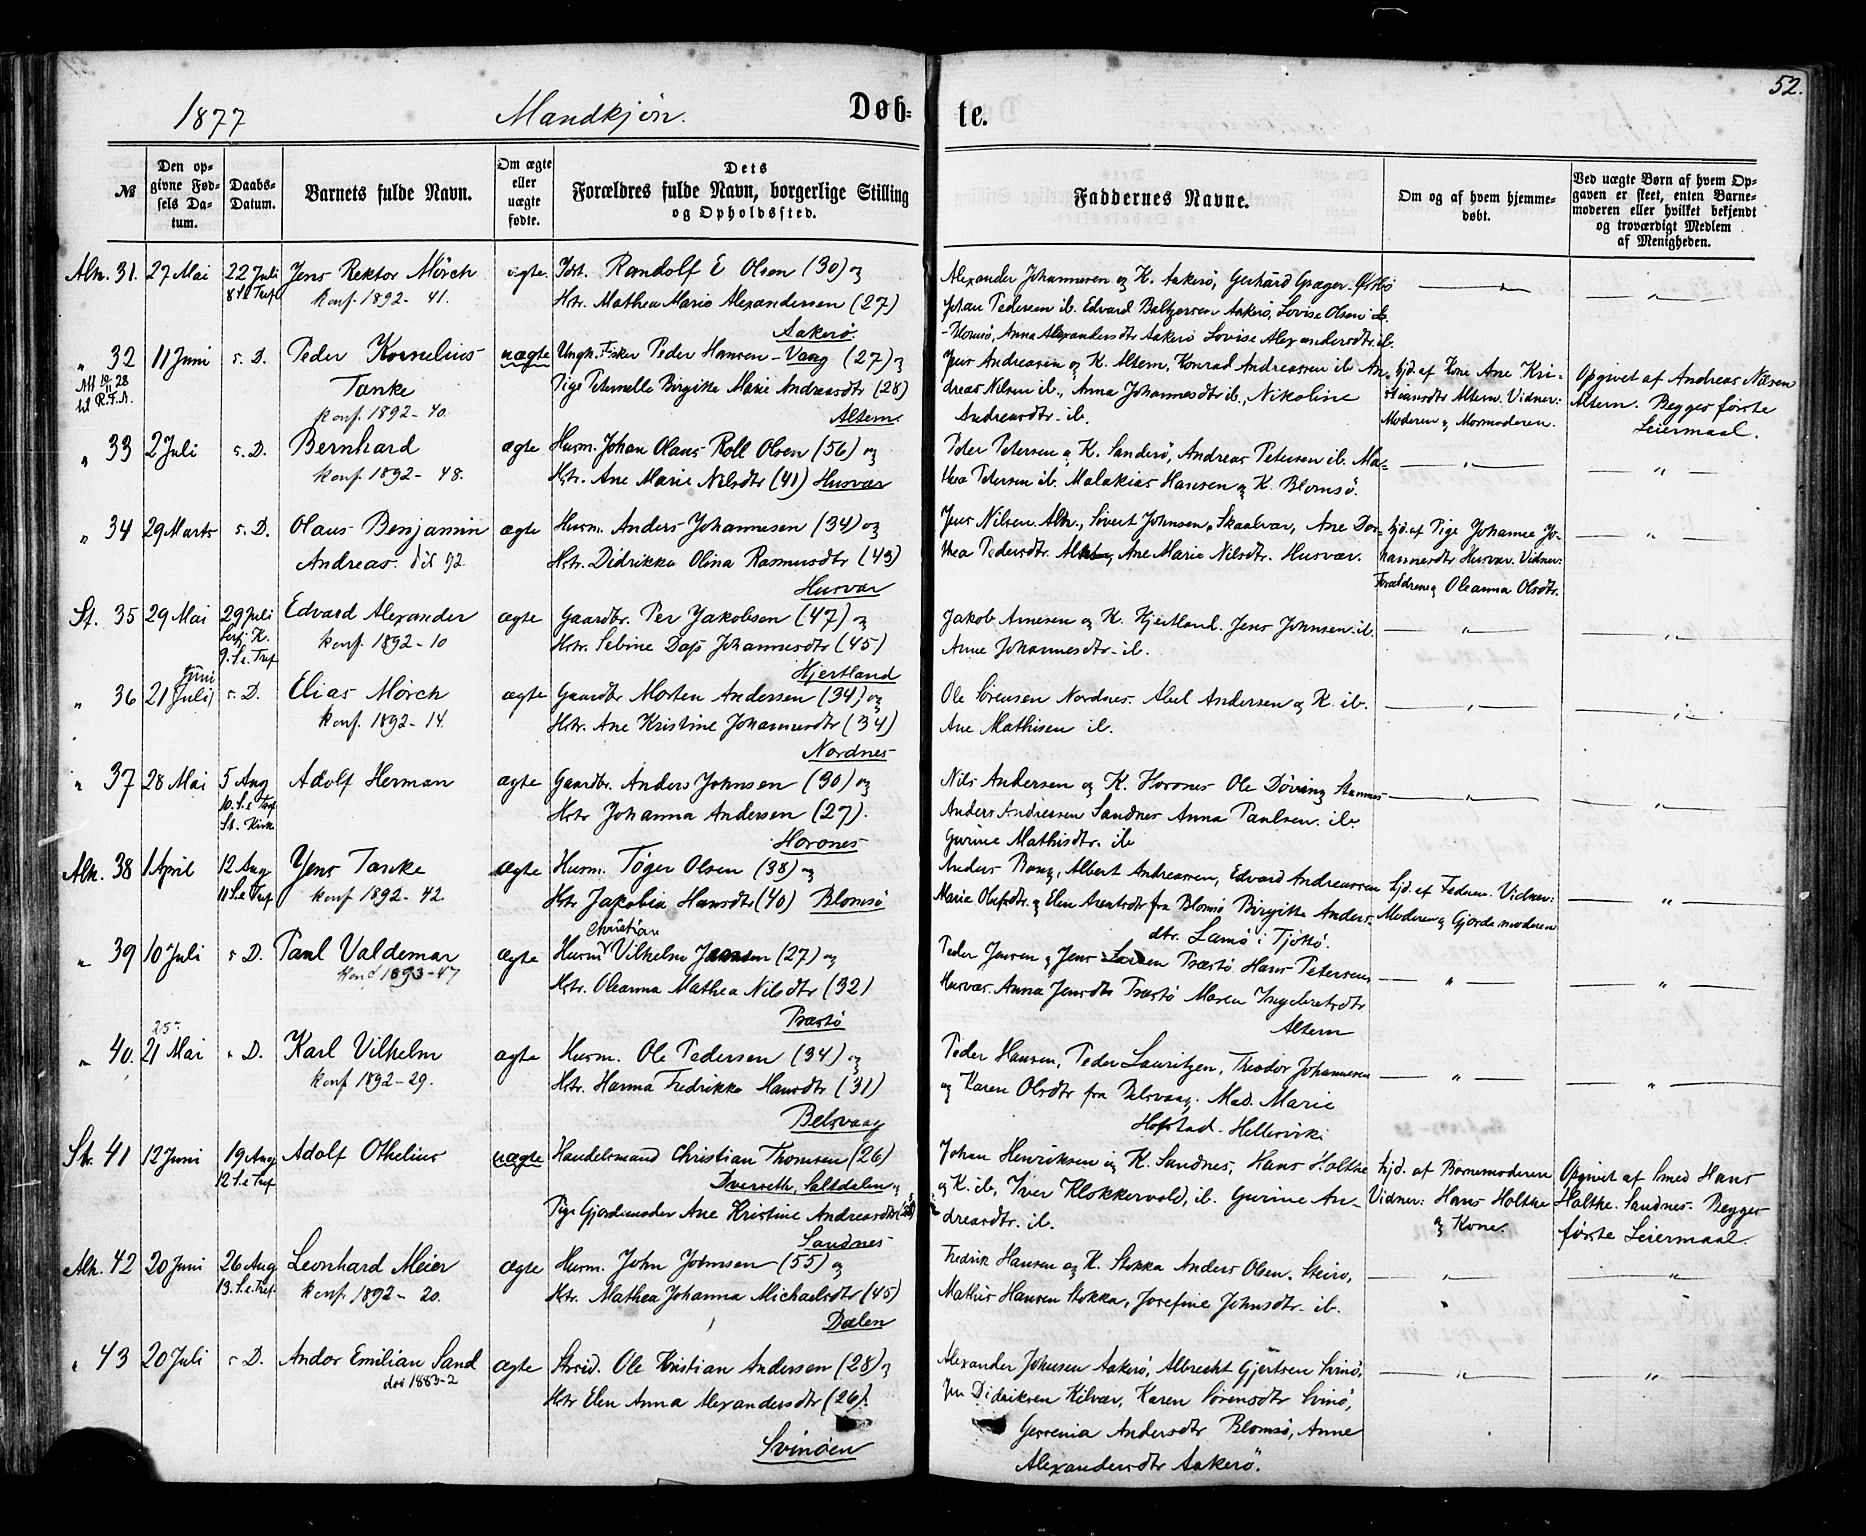 52.
1877 Mandkjøn. Døb- te.
№
Den opgivne Fødsels Datum.
Daabs-Datum.
Barnets fulde Navn.
Om ægte eller uægte fødte.
Dets Forældres fulde Navn, borgerlige Stilling og Opholdssted.
Faddernes Navne.
Om og af hvem hjemmedøbt.
Ved uægte Børn af hvem Opgaven er skeet, enten Barnemoderen eller hvilket bekjendt og troværdigt Medlem af Menigheden.
Alh. 31. 27 Mai 22 Juli Jens Rektor Mørch ægte Idst. Randolf E Olsen (30) og
8 S.e. Tref konf. 1892 - 41. Hstr. Mathea Marie Alexandersen (27)
Aakerø.
Alexander Johannesen og K. Aakerø, Gerhard Græger Østbø
Johan Pedersen ib. Edvard Baltzersen Aakerø, Lovise Olsen ib.
- Blomsø, Anna Alexandersdtr Aakerø Lovise Alexandersdtr. ib.
" 32 11 Juni s. D. Peder Kornelius uægte Ungk. Fisker Peder Hansen - Vaag (27) og
Tanke Pige Peternelle Birgitte Marie Andreasdtr (28)
konf. 1892 - 40. Altern.
Jens Andreasen og K. Altern, Konrad Andreassen ib. An-
dreas Nilsen ib., Anna Johannesdtr ib., Nikoline
Andreasdtr. ib.
hjd. af Kone Ane Kri-
stiansdtr Altern. Vidner:
Moderen og Mormoderen.
Opgivet af Andreas Nilsen
Altern. Begges første
Leiermaal.
" 33 2 Juli s. D. Bernhard ægte Husm. Johan Olaus Roll Olsen (56) og
konf. 1892 - 48. Hstr. Ane Marie Nilsdtr (41) Husvær
Peter Petersen og K. Sanderø, Andreas Petersen ib. Ma-
thea Petersen ib. Malakias Hansen og K. Blomsø.
" 34 29 Marts s. D. Olaus Benjamin ægte Husm. Anders Johannesen (34) og
Andreas. Hstr. Didrikke Olina Rasmusdtr (43)
Husvær
Jens Nilsen Alh., Sivert Johnsen, Skaalvær, Ane Dor-
thea Pedersdtr. Ane Marie Nilsdtr. Husvær.
hjd. af Pige Johanna Jo-
hannesdtr Husvær. Vidner:
Forældrene og Oleanna Olsdtr.
St. 35 29 Mai 29 Juli Edvard Alexander ægte Gaardbr. Per Jakobsen (47) og
9. S.e. Tref konf. 1892 - 10 Hstr. Sebine Dass Johannesdtr (45)
Hjertland
Jakob Arnesen og K. Hjertland. Jens Johnsen ib.
Anne Johannesdtr - ib.
" 36 21 Juli Juni s. D. Elias Mørch ægte Gaardbr Morten Andersen (34) og
konf. 1892 - 14. Hstr. Ane Kristine Johannesdtr (34)
Nordnes
Ole Sørensen Nordnes. Abel Andersen og K. ib.
Ane Mathisen ib.
" 37 28 Mai 5 Aug Adolf Herman ægte Gaardbr. Anders Johnsen (30) og
10. S.e Tref Hstr Johanna Andersen (27).
St. Kirke Horsnes
Nils Andersen og K. Horsnes Ole Døving Stamnes
Anders Andreesen Sandnes Anna Paulsen. ib.
Gurine Mathisdtr. ib
Alh. 38 1 April 12 Aug Jens Tanke ægte Husm. Tøger Olsen (38) og
11 S.e Tref konf 1892 - 42 Hstr Jakobia Hansdtr (40) Blomsø
Anders Bang, Albert Andreassen, Edvard Andreassen
Marie Olufsdtr. og Elen Arentsdtr fra Blomsø Birgitte Anders-
dtr. Lamø i Tjøttø.
hjd. af Faderen. Vidner:
Moderen og Gjordemoderen
" 39 10 Juli s D. Paul Valdemar ægte Husm Christian Vilhelm Jansen (27) og
konf 1893 - 47 Hstr. Oleanna Mathea Nilsdtr (32)
Præstø
Peder Jensen og Jens Larsen Præstø Hans Petersen
Husvær. Anna Jensdtr Præstø Maren Ingebretsdtr
Altern
" 40. 25 21 Mai " D. Karl Vilhelm ægte Husm. Ole Pedersen (34) og
konf 1892 - 29. Hstr. Hanna Fredrikke Hansdtr (31)
Belsvaag
Peder Hansen, Peder Lauritzen, Theodor Johannesen
og Karen Olsdtr fra Belsvaag. Mad. Marie
Hofstad - Hellesvik
St. 41 12 Juni 19 Aug Adolf Othelius uægte Handelsmand Christian Thomsen (26)
12 S.e Tref Dverseth, Saltdalen og
Pige Gjordemoder Ane Kristine Andreasdtr
Sandnes
Johan Henriksen og K. Sandnes, Hans Holthe
og K. ib, Iver Klokkervold, ib. Gurine An-
dreasdtr. ib.
hjd. af Barnemoderen
Vidner: Hans Holthe
og Kone.
Opgivet af Smed Hans
Holthe. Sandnes. Begges
første Leiermaal.
Alh. 42 20 Juni 26 Aug Leonhard Meier ægte Husm. John Johnsen (55) og
13. S.e. Tref. konf. 1892 - 20. Hstr. Mathea Johanna Michaelsdtr (45)
Dalen
Fredrik Hansen og K. Stokka Anders Olsen. Steiro,
Mathis Hansen Stokka, Josefine Johnsdtr - ib.
" 43 20 Juli s D. Andor Emilian Sand ægte Strid. Ole Kristian Andersen (28) og
død 1883-2 Hstr Elen Anna Alexandersdtr (26).
Svinøen
Alexander Johnsen Aakerø, Albrecht Gjertsen Svinø,
Jens Didriksen Kilvær, Karen Sørensdtr Svinø,
Andersdtr Blomsø, Anne
Alexandersdtr Aakerø.